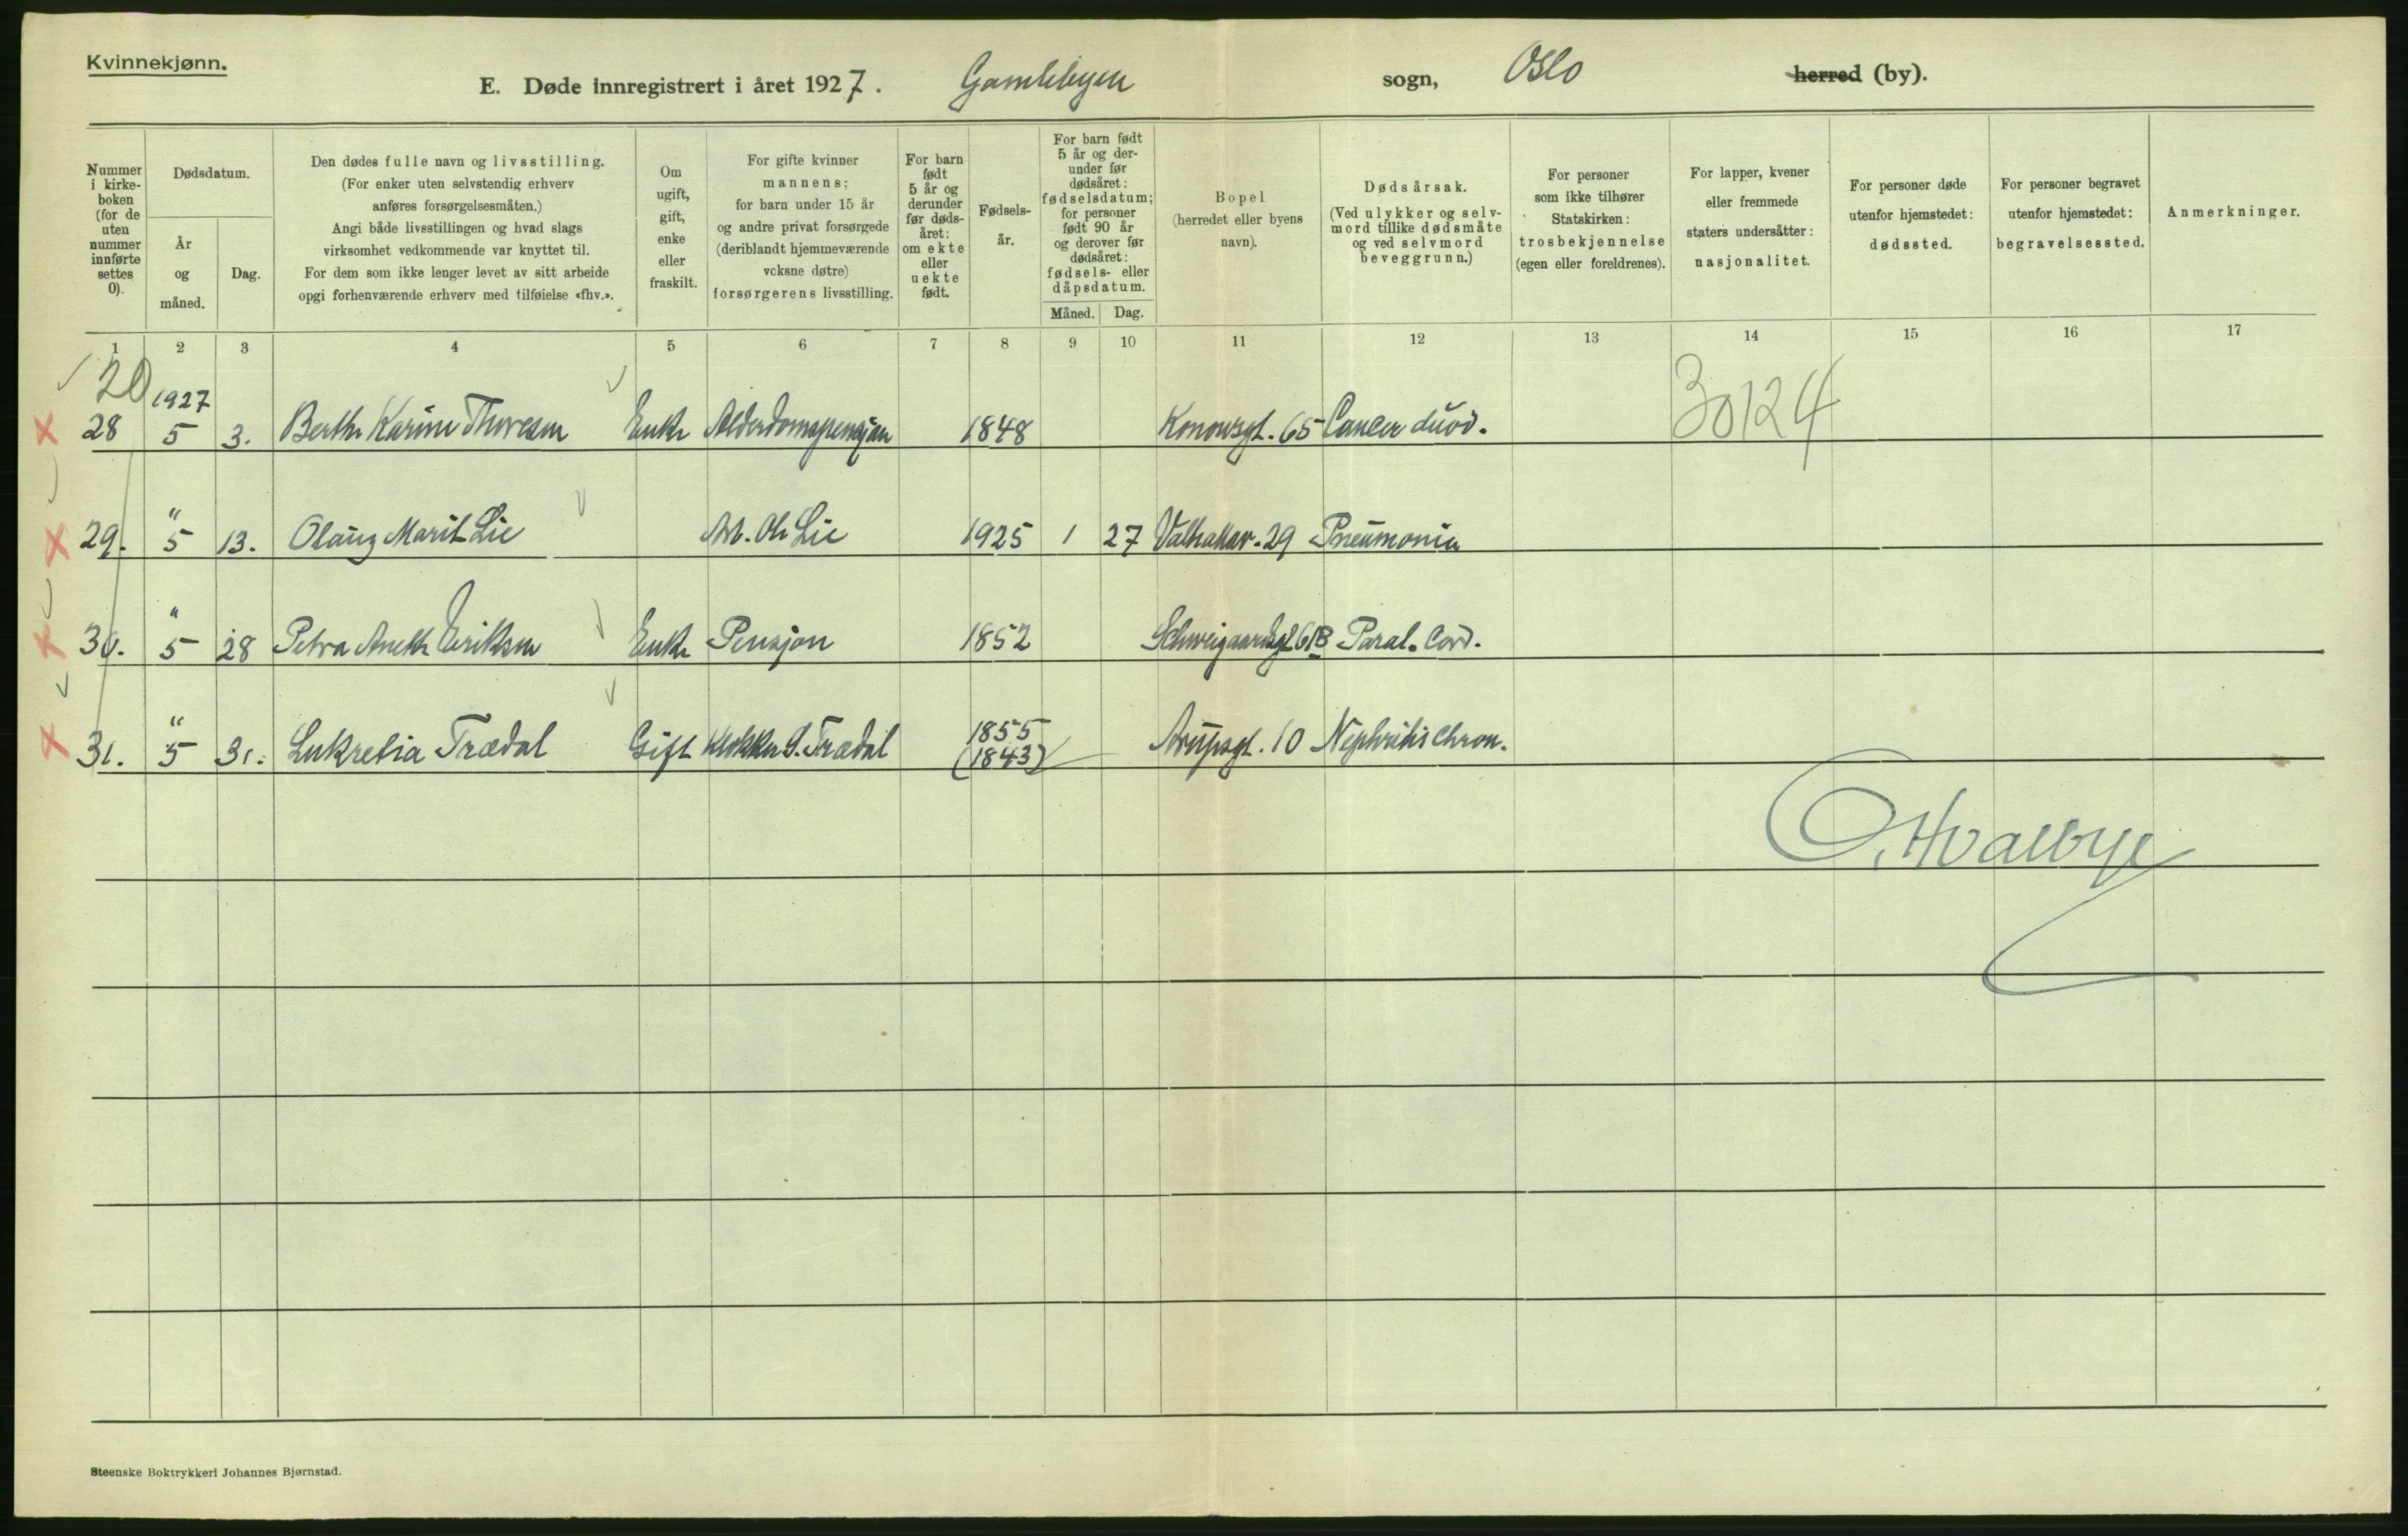 Kvinnekjønn.
E. Døde innregistrert i året 1927. Gamlebyen sogn, Oslo herred (by).
Nummer i kirke- boken (for de uten nummer innførte settes 0).
Dødsdatum.
År og måned.
Dag.
Den dødes fulle navn og livsstilling.
(For enker uten selvstendig erhverv
anføres forsørgelsesmåten.)
Angi både livsstillingen og hvad slags
virksomhet vedkommende var knyttet til.
For dem som ikke lenger levet av sitt arbeide
opgi forhenværende erhverv med tilføielse «fhv.».
Om ugift, gift, enke eller fraskilt.
For gifte kvinner
mannens;
for barn under 15 år
og andre privat forsørgede
(deriblandt hjemmeværende
voksne døtre)
forsørgerens livsstilling.
For barn født 5 år og derunder før døds- året: om ekte eller uekte født.
Fødsels- år.
For barn født 5 år og der- under før dødsåret: fødselsdatum; for personer født 90 år og derover før dødsåret: fødsels- eller dåpsdatum.
Måned. Dag.
Bopel
(herredet eller byens
navn).
Dødsårsak.
(Ved ulykker og selv-
mord tillike dødsmåte
og ved selvmord
beveggrunn.)
For personer
som ikke tilhører
Statskirken:
trosbekjennelse
(egen eller foreldrenes).
For lapper, kvener
eller fremmede
staters undersåtter:
nasjonalitet.
For personer døde
utenfor hjemstedet:
dødssted.
For personer begravet
utenfor hjemstedet:
begravelsessted.
Anmerkninger.
1 2 3 4 5 6 7 8 9 10 11 12 13 14 15 16 17
20 1927
28 5 3. Berthe Karine Thoresen Enke Alderdomspensjon 1848 Konowsgt. 65 Cancer duod. 30124
29. " 5 13. Olaug Marit Lie Arb. Ole Lie 1925 1 27 Valhallav. 29 Pneumonia
30. " 5 28 Petra Anethe Eriksen Enke Pensjon 1852 Schweigaardsgt 61B Paral. Cord.
31. " 5 31. Lukretia Trædal Gift Klokker S. Trædal 1855 (1843) Arupsgt. 10 Nephritis Chron.
O. Hvalbye
Steenske Boktrykkeri Johannes Bjørnstad.